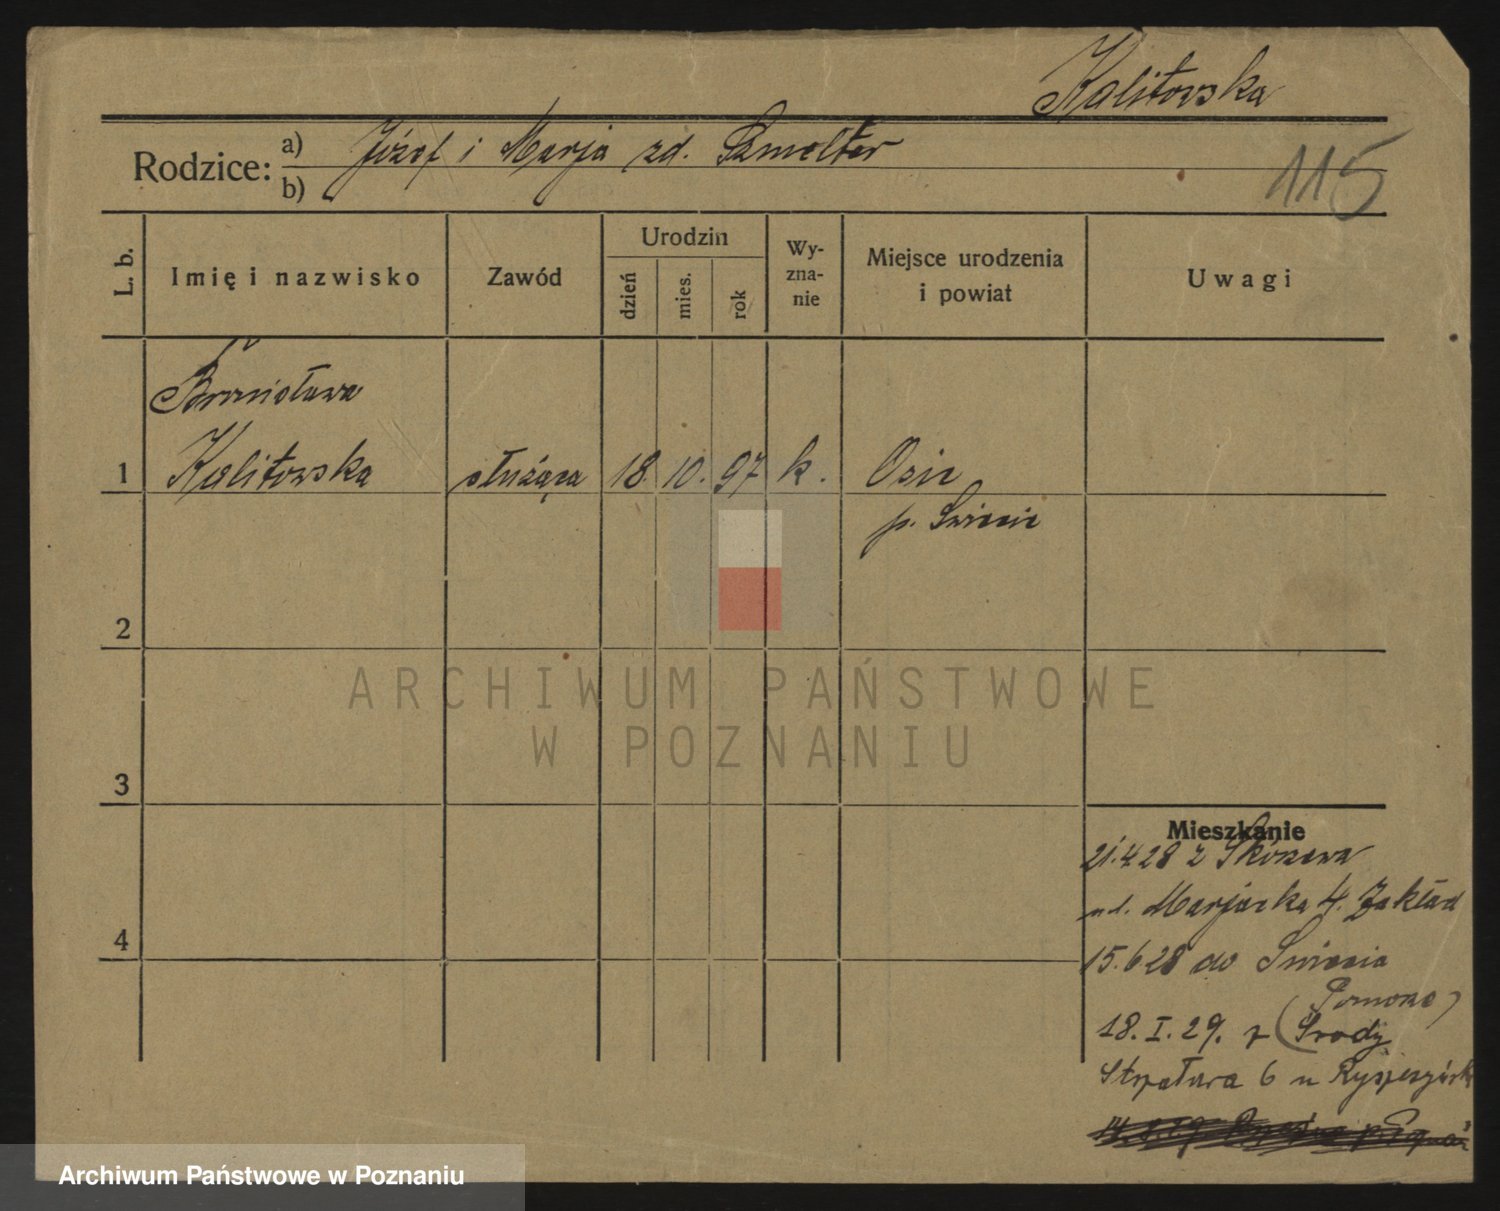 Kalitowska
115
Rodzice: a) Józef i Marja zd. Szmelter
b)
L. b.
Imię i nazwisko
Zawód
Urodzin
dzień
mies.
rok
Wy-
zna-
nie
Miejsce urodzenia
i powiat
Uwagi
Bronisława
1 Kalitowska służąca 18. 10. 97 k. Osie
p. Świecie
2
3
4
Mieszkanie
21.4.28 z Skórzewa
ul. Marjacka 4. Zakład
15.6.28 do Świecia
(Pomorze)
18.I.29. z Środy
Strzałowa 6 u
ARCHIWUM PAŃSTWOWE
W POZNANIU
Archiwum Państwowe w Poznaniu